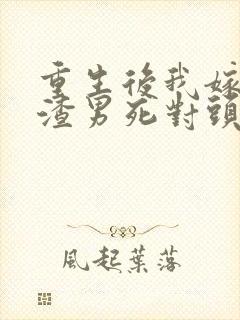 重生後我嫁
渣男死對頭
風起葉落